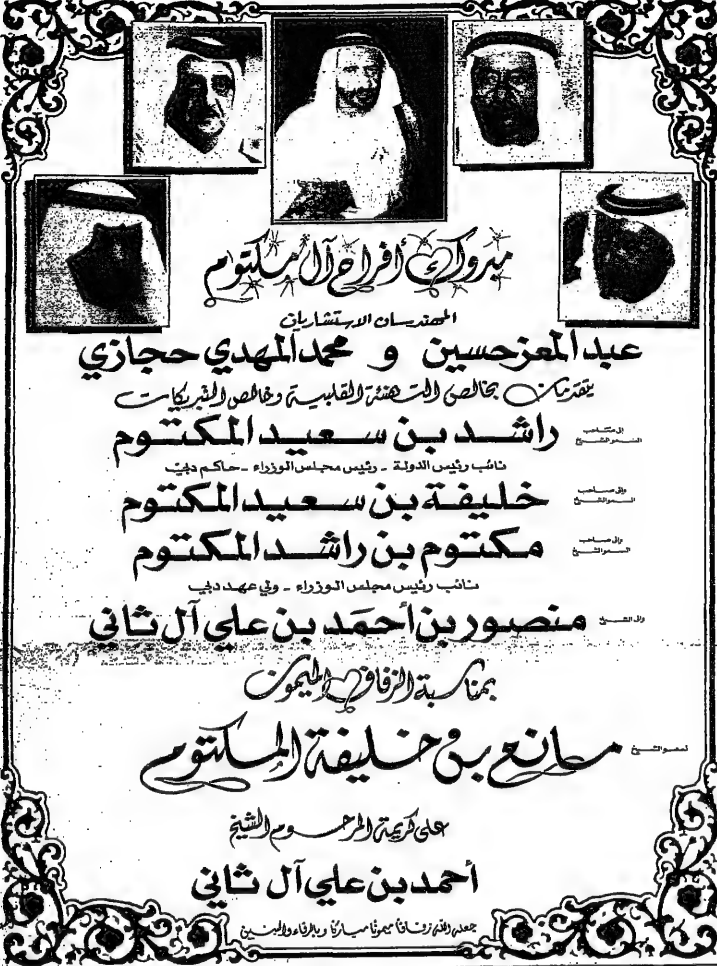 مبروك أفراح آل مكتوم
المهندسان الاستشاريان
عبد المعز حسين و محمد المهدي حجازي
يتقدمان بخالص التهنئة القلبية وخالص التبريكات
إلى صاحب السمو الشيخ راشد بن سعيد المكتوم
نائب رئيس الدولة - رئيس مجلس الوزراء - حاكم دبي
وإلى صاحب السمو الشيخ خليفة بن سعيد المكتوم
وإلى صاحب السمو الشيخ مكتوم بن راشد المكتوم
نائب رئيس مجلس الوزراء - ولي عهد دبي
وإلى الشيخ منصور بن أحمد بن علي آل ثاني
بمناسبة الزفاف الميمون
لسمو الشيخ مانع بن خليفة المكتوم
على كريمة المرحوم الشيخ
أحمد بن علي آل ثاني
جعله الله زفافا ميمونا مباركا وبالرفاء والبنين